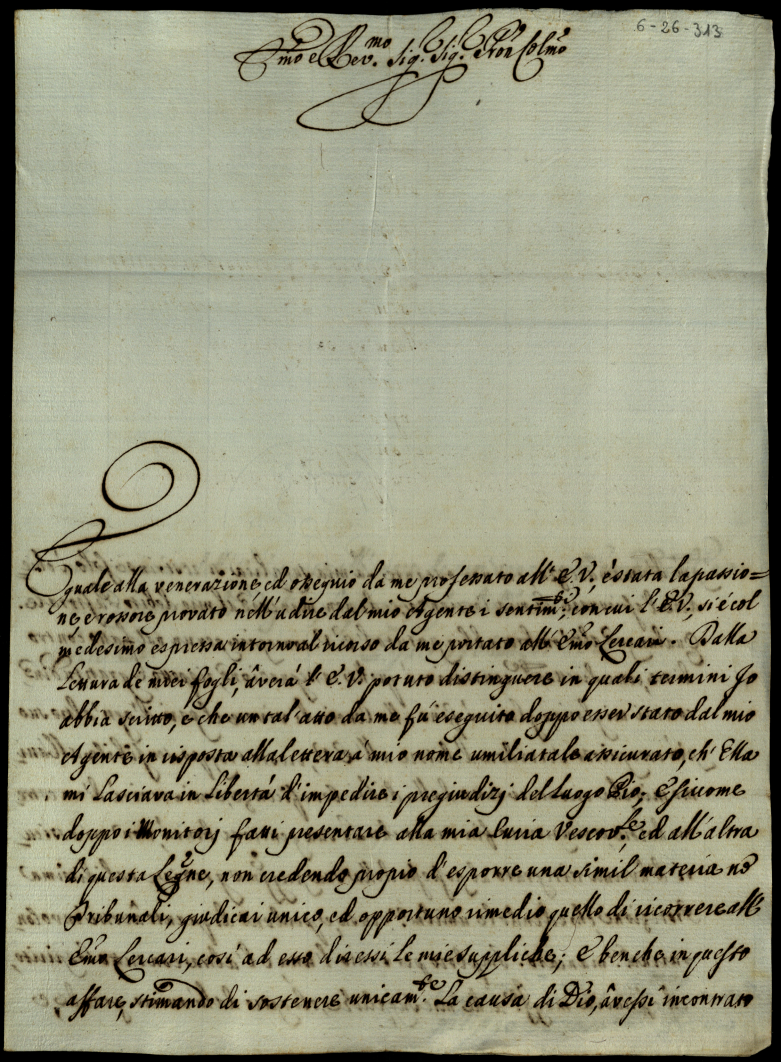 6-26-313
Emo e Revmo. Sig. Sig. Pron Colmo
Eguale alla venerazione, ed ossequio da me professato all' E.V., è stata la passio=
ne, e rossore provato nell' udire dal mio Agente i sentimti, con cui l' E.V., si è col
medesimo espressa intorno al ricorso da me portato all' Emo Lercari. Dalla
Lettura de miei fogli, averá l' E.V. potuto distinguere in quali termini Io
abbia scritto, e che un tal' atto da me fú eseguito doppo esser stato dal mio
Agente in risposta alla lettera á mio nome umiliatale assicurato, ch' Ella
mi Lasciava in Libertá d' impedire i pregiudizj del Luogo Pio; E siccome
doppo i Monitorj fatti presentare alla mia Curia Vescovle, ed all' altra
di questa Legne, non credendo proprio d' esporre una simil materia ne
Tribunali, giudicai unico, ed opportuno rimedio quello di ricorrere all'
Emo Lercari, cosí ad esso diressi le mie suppliche; E benche in questo
affare, stimando di sostenere unicamte La causa di Dio, avessi incontrato